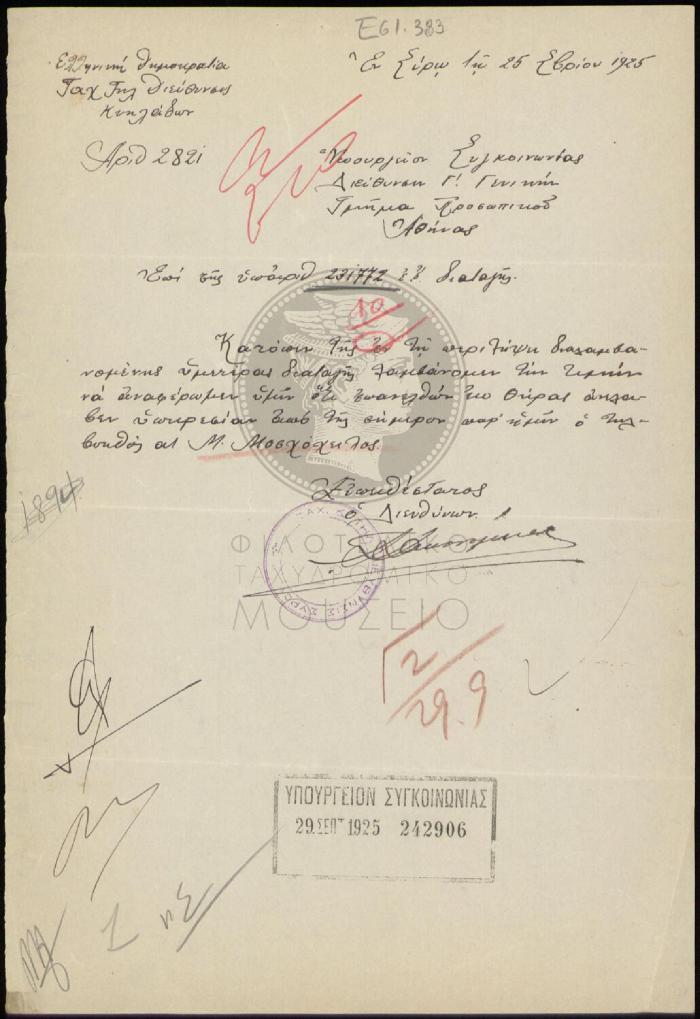 Ε61.383
Ἑλληνική Δημοκρατία
Ταχ Τηλ Διεύθυνσις
Κυκλάδων
Ἐν Σύρῳ τῇ 25 7βρίου 1925
Ἀριθ 2821
Ὑπουργεῖον Συγκοινωνίας
Διεύθυνσιν Γ! Γενικήν
Τμῆμα Προσωπικοῦ
Ἀθήνας
Ἐπί τῆς ὑπ' ἀριθ 231772 ἐ.ἔ. διαταγῆς.
10
Κατόπιν τῆς ἐν τῇ περιλήψει διαλαμβα-
νομένης ὑμετέρας διαταγῆς λαμβάνομεν τήν τιμήν
νά ἀναφέρωμεν ὑμῖν ὅτι ἐπανελθών ἐκ Θήρας ἀνέλα-
βεν ὑπηρεσίαν ἀπό τῆς σήμερον παρ' ἡμῖν ὁ τηλ-
βοηθός α! Μ. Μοσχόχειλος.
1894
Εὐπειθέστατος
ὁ Διευθύνων
ΦΙΛΟΤΕΛΙΚΟ
ΤΑΧΥΔΡΟΜΙΚΟ
ΜΟΥΣΕΙΟ
2/29.9
ΥΠΟΥΡΓΕΙΟΝ ΣΥΓΚΟΙΝΩΝΙΑΣ
29.ΣΕΠΤ 1925 242906